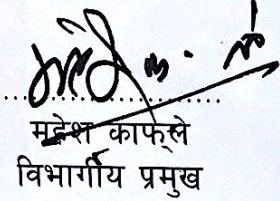 महेश काफ्ले
विभागीय प्रमुख